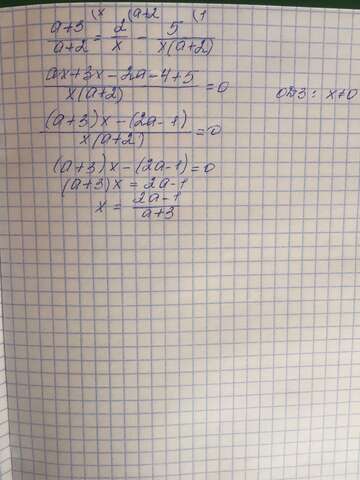 (x (a+2 (1
a+3/a+2 = 2/x - 5/x(a+2)
ax+3x-2a-4+5/x(a+2) = 0 ОДЗ: x≠0
(a+3)x-(2a-1)/x(a+2) = 0
(a+3)x-(2a-1)=0
(a+3)x = 2a-1
x = 2a-1/a+3